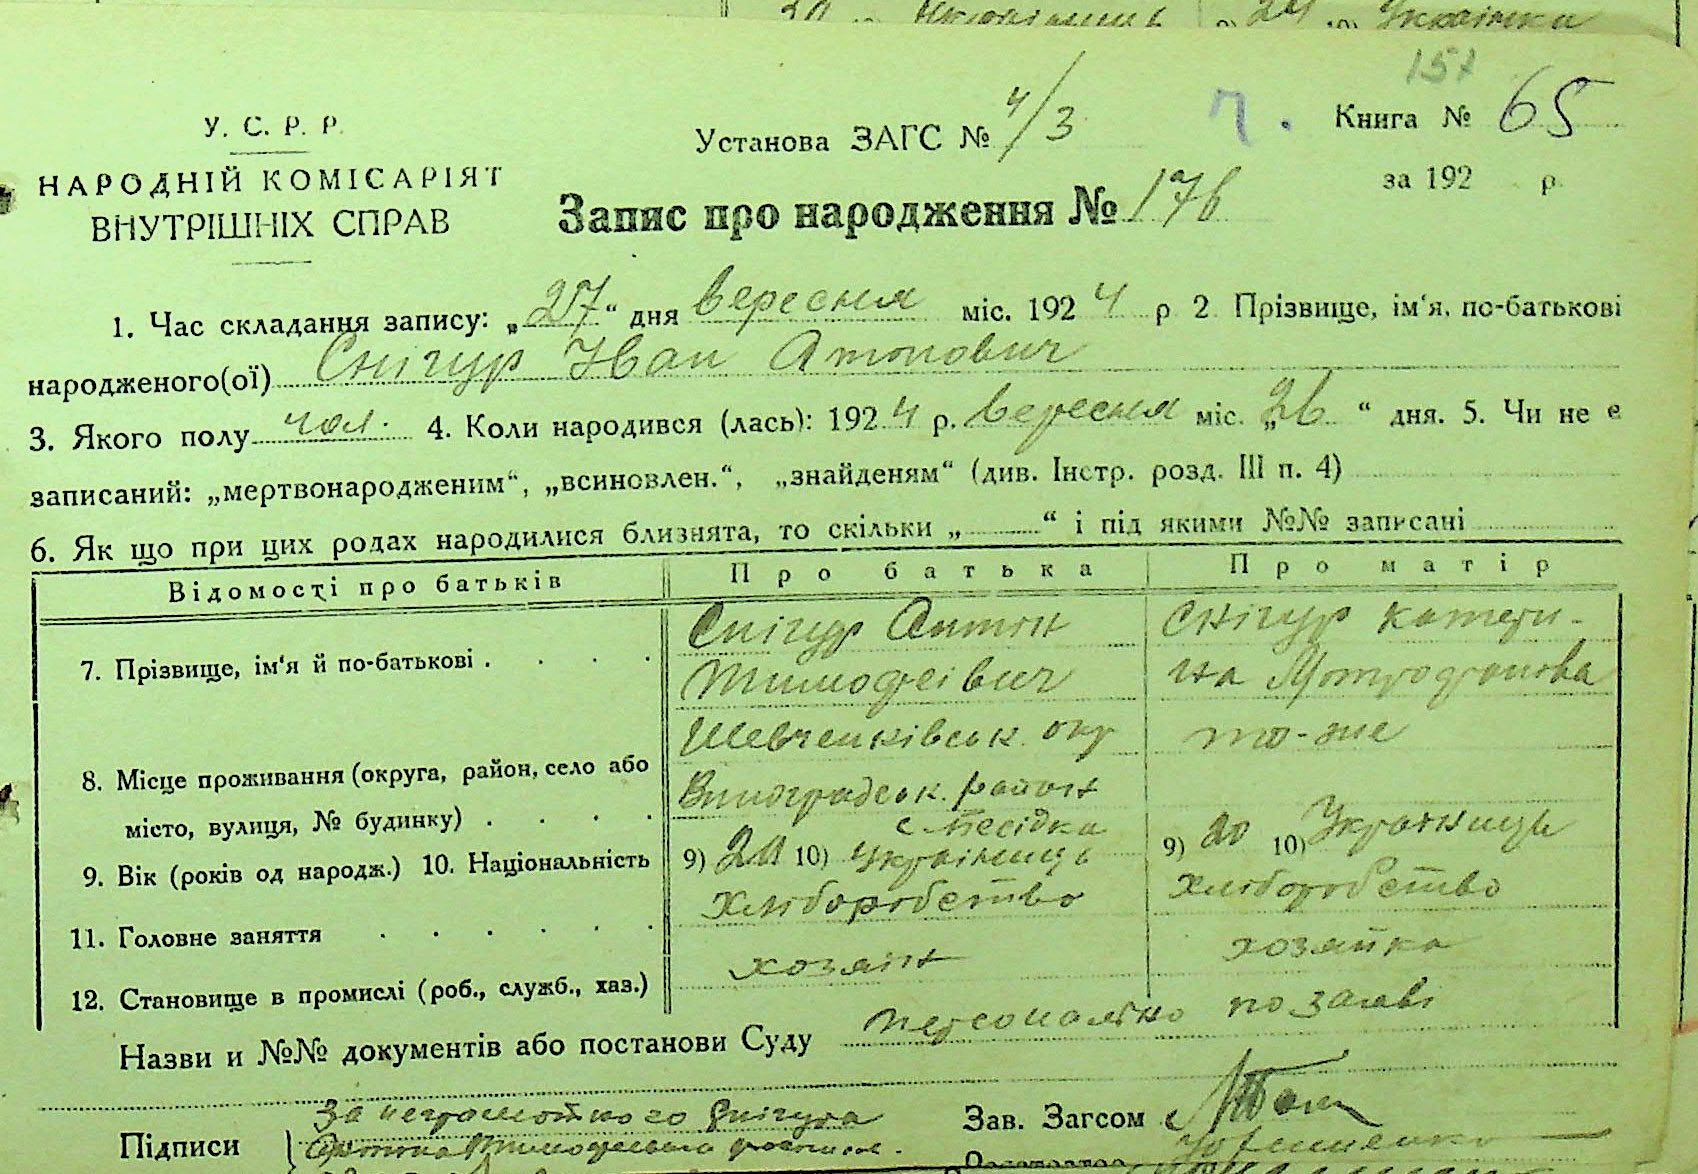 Українка
157
У. С. Р. Р.
НАРОДНІЙ КОМІСАРІЯТ
ВНУТРІШНІХ СПРАВ
Установа ЗАГС № 4/3
Книга № 65
за 192 р.
Запис про народження № 176
1. Час складання запису: „27“ дня вересня міс. 1924 р 2 Прізвище, ім‘я, по-батькові
народженого(ої) Снігур Іван Атонович
3. Якого полу чол. 4. Коли народився (лась): 1924 р. вересня міс. „26“ дня. 5. Чи не є
записаний: „мертвонародженим“, „всиновлен.“, „знайденям“ (див. Інстр. розд. III п. 4)
6. Як що при цих родах народилися близнята, то скільки „ “ і під якими №№ записані
Відомості про батьків Про батька Про матір
7. Прізвище, ім‘я й по-батькові . . . .
Снігур Антон
Тимофеівич
Снігур Катери-
на Митрофанова
8. Місце проживання (округа, район, село або
місто, вулиця, № будинку) . . . .
Шевченківськ. окр
Виноградськ. район
с.
то-же
9. Вік (років од народж.) 10. Національність
9) 10) Українець
9) 20 10) Українець
11. Головне заняття . . . . . .
Хліборобство
хліборобство
12. Становище в промислі (роб., служб., хаз.)
хозяін
хозяйка
Назви и №№ документів або постанови Суду персонально по заяві
Підписи
За неграмотного Снігура
Антона Тимофеевича
Зав. Загсом